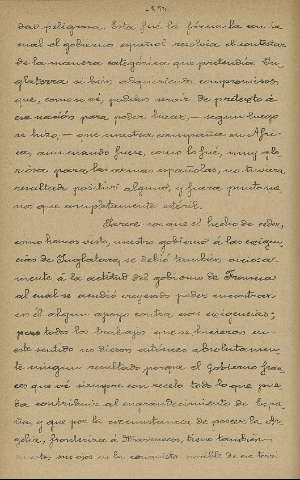 dad peligrosa. Esta fué la fórmula con la
cual el gobierno español resolvía el contestar
de la manera categórica que pretendía In-
glaterra si bien adquiriendo compromisos
que, como se vé, podían servir de pretexto á
esa nación para poder hacer, — según luego
se hizo, — que nuestra campaña en Áfri-
ca, aun cuando fuese, como lo fué, muy glo-
riosa para las armas españolas, no tuviera
resultado positivo alguno, y fuera punto me-
nos que completamente estéril.
Parece ser que el hecho de ceder,
como hemos visto, nuestro gobierno á las exigen-
cias de Inglaterra, se debió también
á la actitud del gobierno de Francia
al cual se acudió creyendo poder encontrar
en él algun apoyo contra esas exigencias;
pero todos los trabajos que se hicieron en
este sentido no dieron entonces absolutamen-
te ningun resultado porque el Gobierno fran-
cés que vé siempre con recelo todo lo que pue-
da contribuir al engrandecimiento de Espa-
ña, y que por la circunstancia de poseer la Ar-
gelia, fronteriza á Marruecos, tiene también
puestos sus ojos en la conquista posible de ese terri-